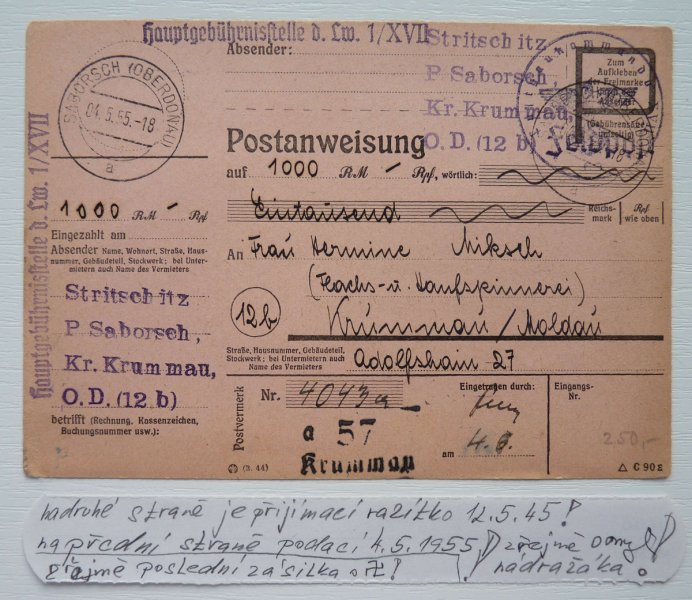 Hauptgebührnisstelle d. Lw. 1/XVII
Hauptgebührnisstelle d. Lw. 1/XVII
SABORSCH (OBERDONAU)
04.5.55.-18
a
1000 RM — Rpf
Eingezahlt am
Absender Name, Wohnort, Straße, Haus-
nummer, Gebäudeteil, Stockwerk; bei Unter-
mietern auch Name des Vermieters
Stritschitz
P Saborsch,
Kr. Krummau,
O. D. (12 b)
betrifft (Rechnung, Kassenzeichen,
Buchungsnummer usw.):
Absender:
Stritschitz
P Saborsch,
Kr. Krummau,
O. D. (12 b)
Zum
Aufkleben
der Freimarke
Feldpost
Postanweisung
auf 1000 RM — Rpf, wörtlich:
Eintausend
Reichs-
mark
Rpf
wie oben
An Frau Hermine Miksch
(Flachs- u. Hanfspinnerei)
12b
Krummau / Moldau
Straße, Hausnummer, Gebäudeteil,
Stockwerk; bei Untermietern auch
Name des Vermieters
Adolfshain 27
Postvermerk
Nr. 4043a
a 57
Krummau
Eingetragen durch:
am
Eingangs-
Nr.
250,-
(3. 44)
△ C 90 g
na druhé straně je přijímací razítko 12.5.45!
na přední straně podací 4.5.1955! zřejmě omyl
zřejmě poslední zásilka
nádražáka!